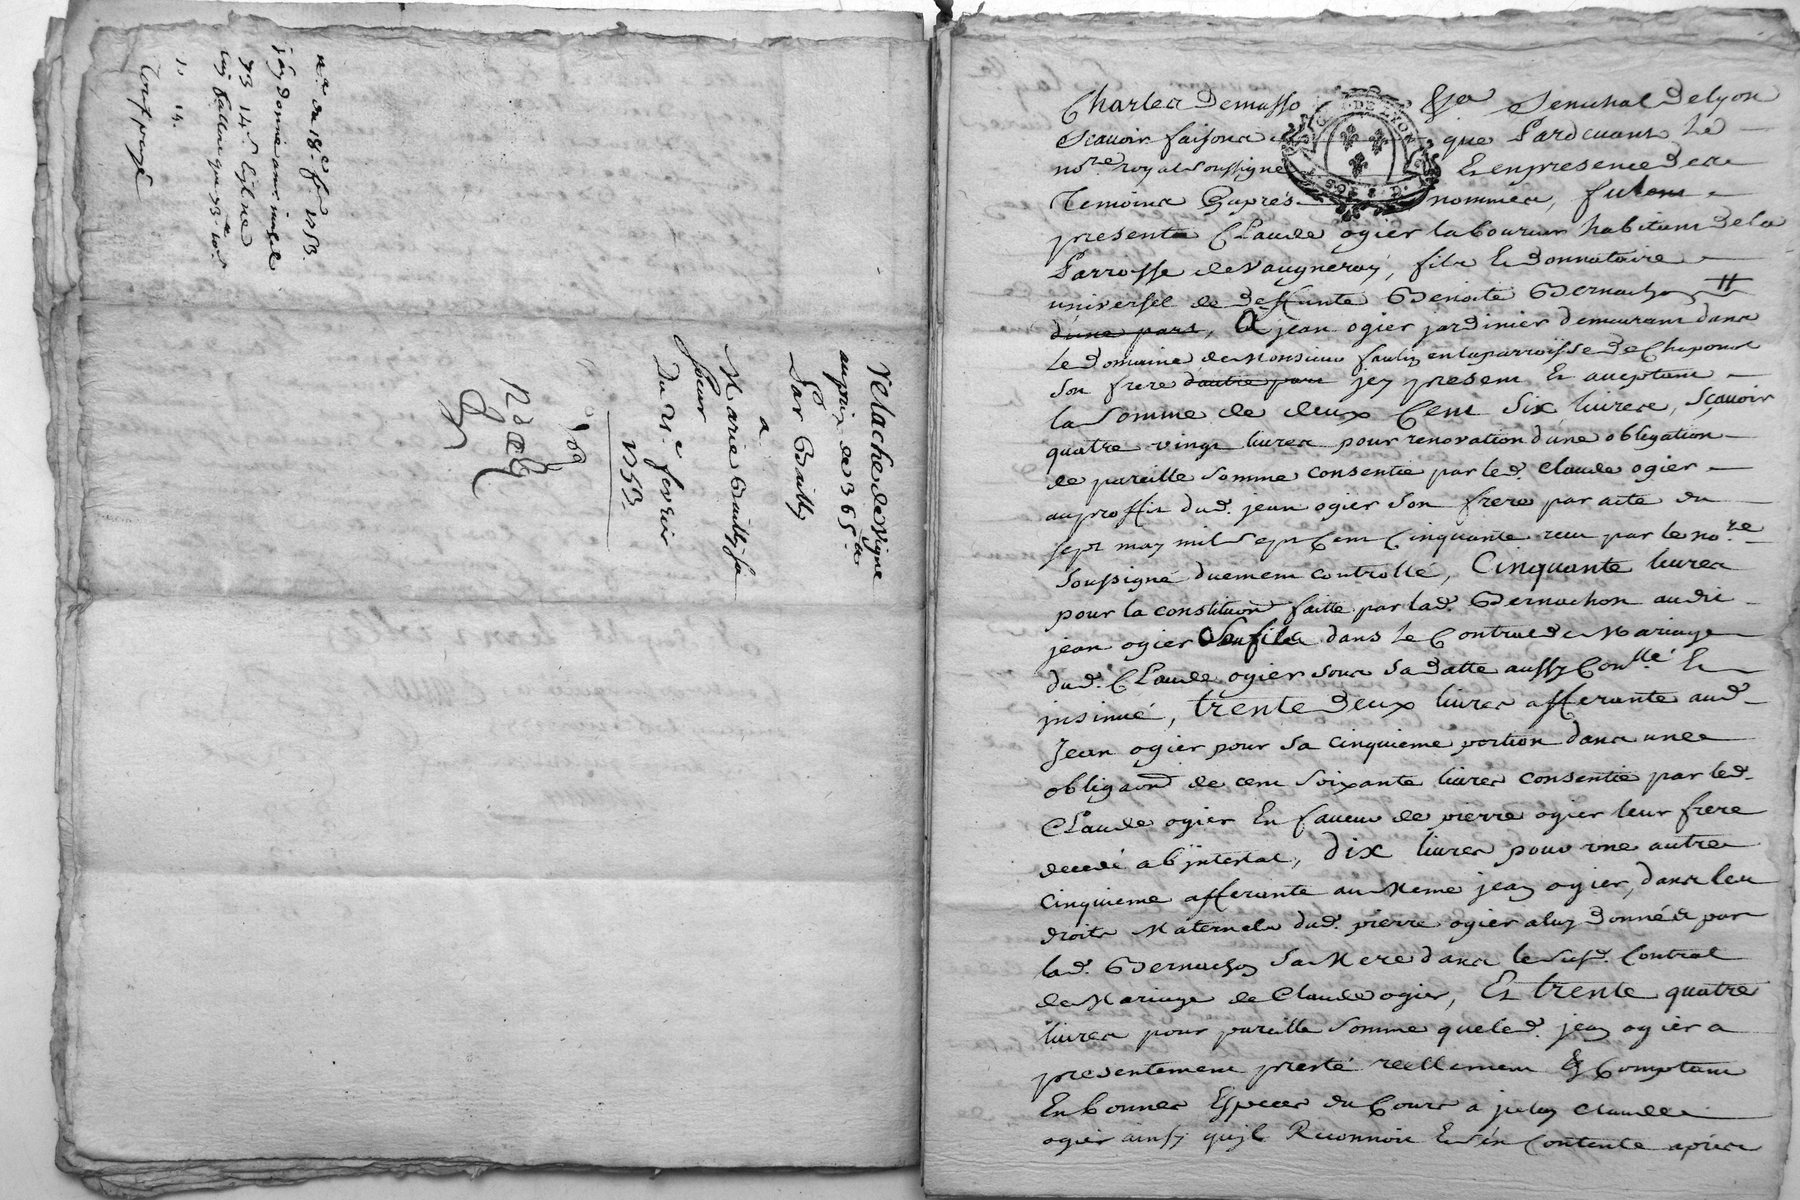 n.re du 18.e fer 1753.
j'ay donné
73 14s
1. 4.
Controlle payé
Relache de Vigne
au prix de 365 ₶
Par Bailly
a
Marie Bailly sa
Soeur
Du 21.e fevrier
1753.
Charles Demasso Senechal De lyon
Scavoir faisons que Pardevant Le
no.re royal soussigné Et en presence Des
Temoins Bapres nommés, fut
present Claude ogier laboureur habitant De la
Parroisse de Vaugneray, fils Et Donnataire
universel de Deffunte Benoite Bernachon #
d'une part, A jean ogier jardinier demeurant dans
Le Domaine de Monsieur en la parroisse De Chaponot
Son frere d'autre part jcy present Et aceptant
la Somme de deux Cent Six livres, Sçavoir
quatre vingt livres pour renovation d'une obligation
de pareille Somme consentie par led. Claude ogier
au proffit dud. jean ogier Son frere par acte du
sept may mil Sept Cent Cinquante receu par le no.re
Soussigné duement controllé, Cinquante livres
pour la constituon faitte par lad. Bernachon audit
jean ogier Son fils dans Le Contract de Mariage
dud. Claude ogier sous sa datte aussy Con.llé Et
jnsinué, trente Deux livres afferante aud.
Jean ogier pour sa cinquieme portion dans une
obligaon de cent soixante livres consentie par led.
Claude ogier En faveur de pierre ogier leur frere
decedé ab jntestat, dix livres pour une autre
cinquieme afferante au Meme jean ogier, dans les
droits Maternels dud. pierre ogier a luy Donnés par
lad. Bernachon Sa Mere dans le susd. Contrat
de Mariage de Claude ogier, Et trente quatre
livres pour pareille Somme que led. jean ogier a
presentement presté reellement Et Comptant
En bonnes Especes du Cours a jceluy Claude
ogier ainsy qu'jl Reconnoit Et s'en Contente apres